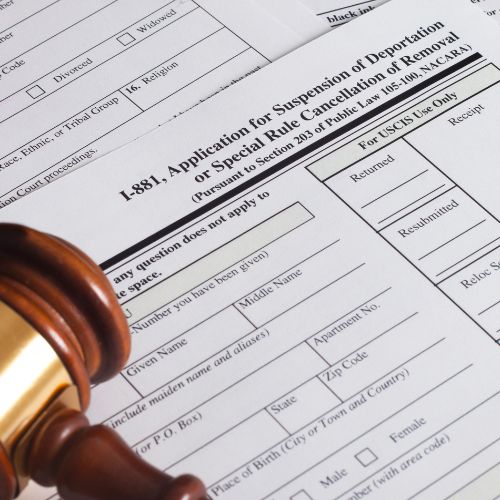 black ink
Widowed
Divorced
16. Religion
Race, Ethnic, or Tribal Group
Court proceedings.
I-881, Application for Suspension of Deportation
or Special Rule Cancellation of Removal
(Pursuant to Section 203 of Public Law 105-100, NACARA)
For USCIS Use Only
Returned
Receipt
Resubmitted
Reloc
any question does not apply to
space.
Number you have been given)
Given Name
Middle Name
(include maiden name and aliases)
Apartment No.
(or P.O. Box)
State
Zip Code
Place of Birth (City or Town and Country)
Male
Female
Number (with area code)